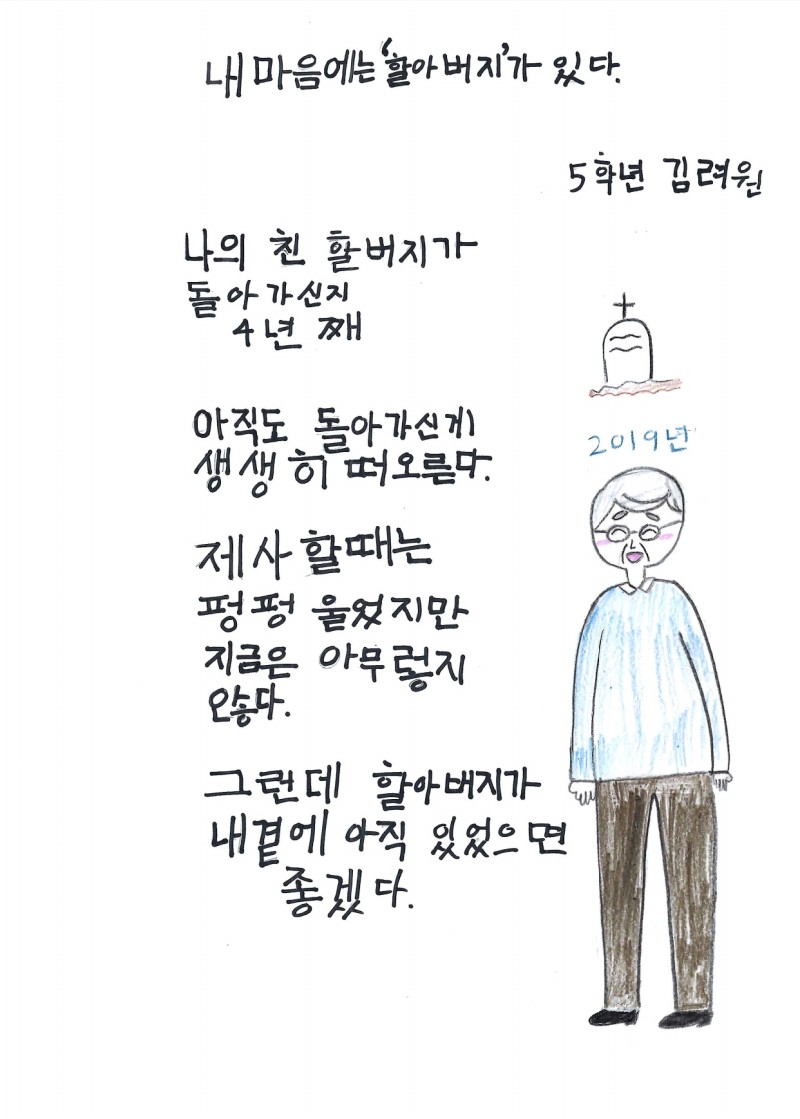 내 마음에는 '할아버지'가 있다.
5학년 김려원
나의 친 할버지가
돌아가신지
4년 째
아직도 돌아가신게
생생히 떠오른다.
제사 할때는
펑펑 울었지만
지금은 아무렇지
않다.
그런데 할아버지가
내곁에 아직 있었으면
좋겠다.
2019년